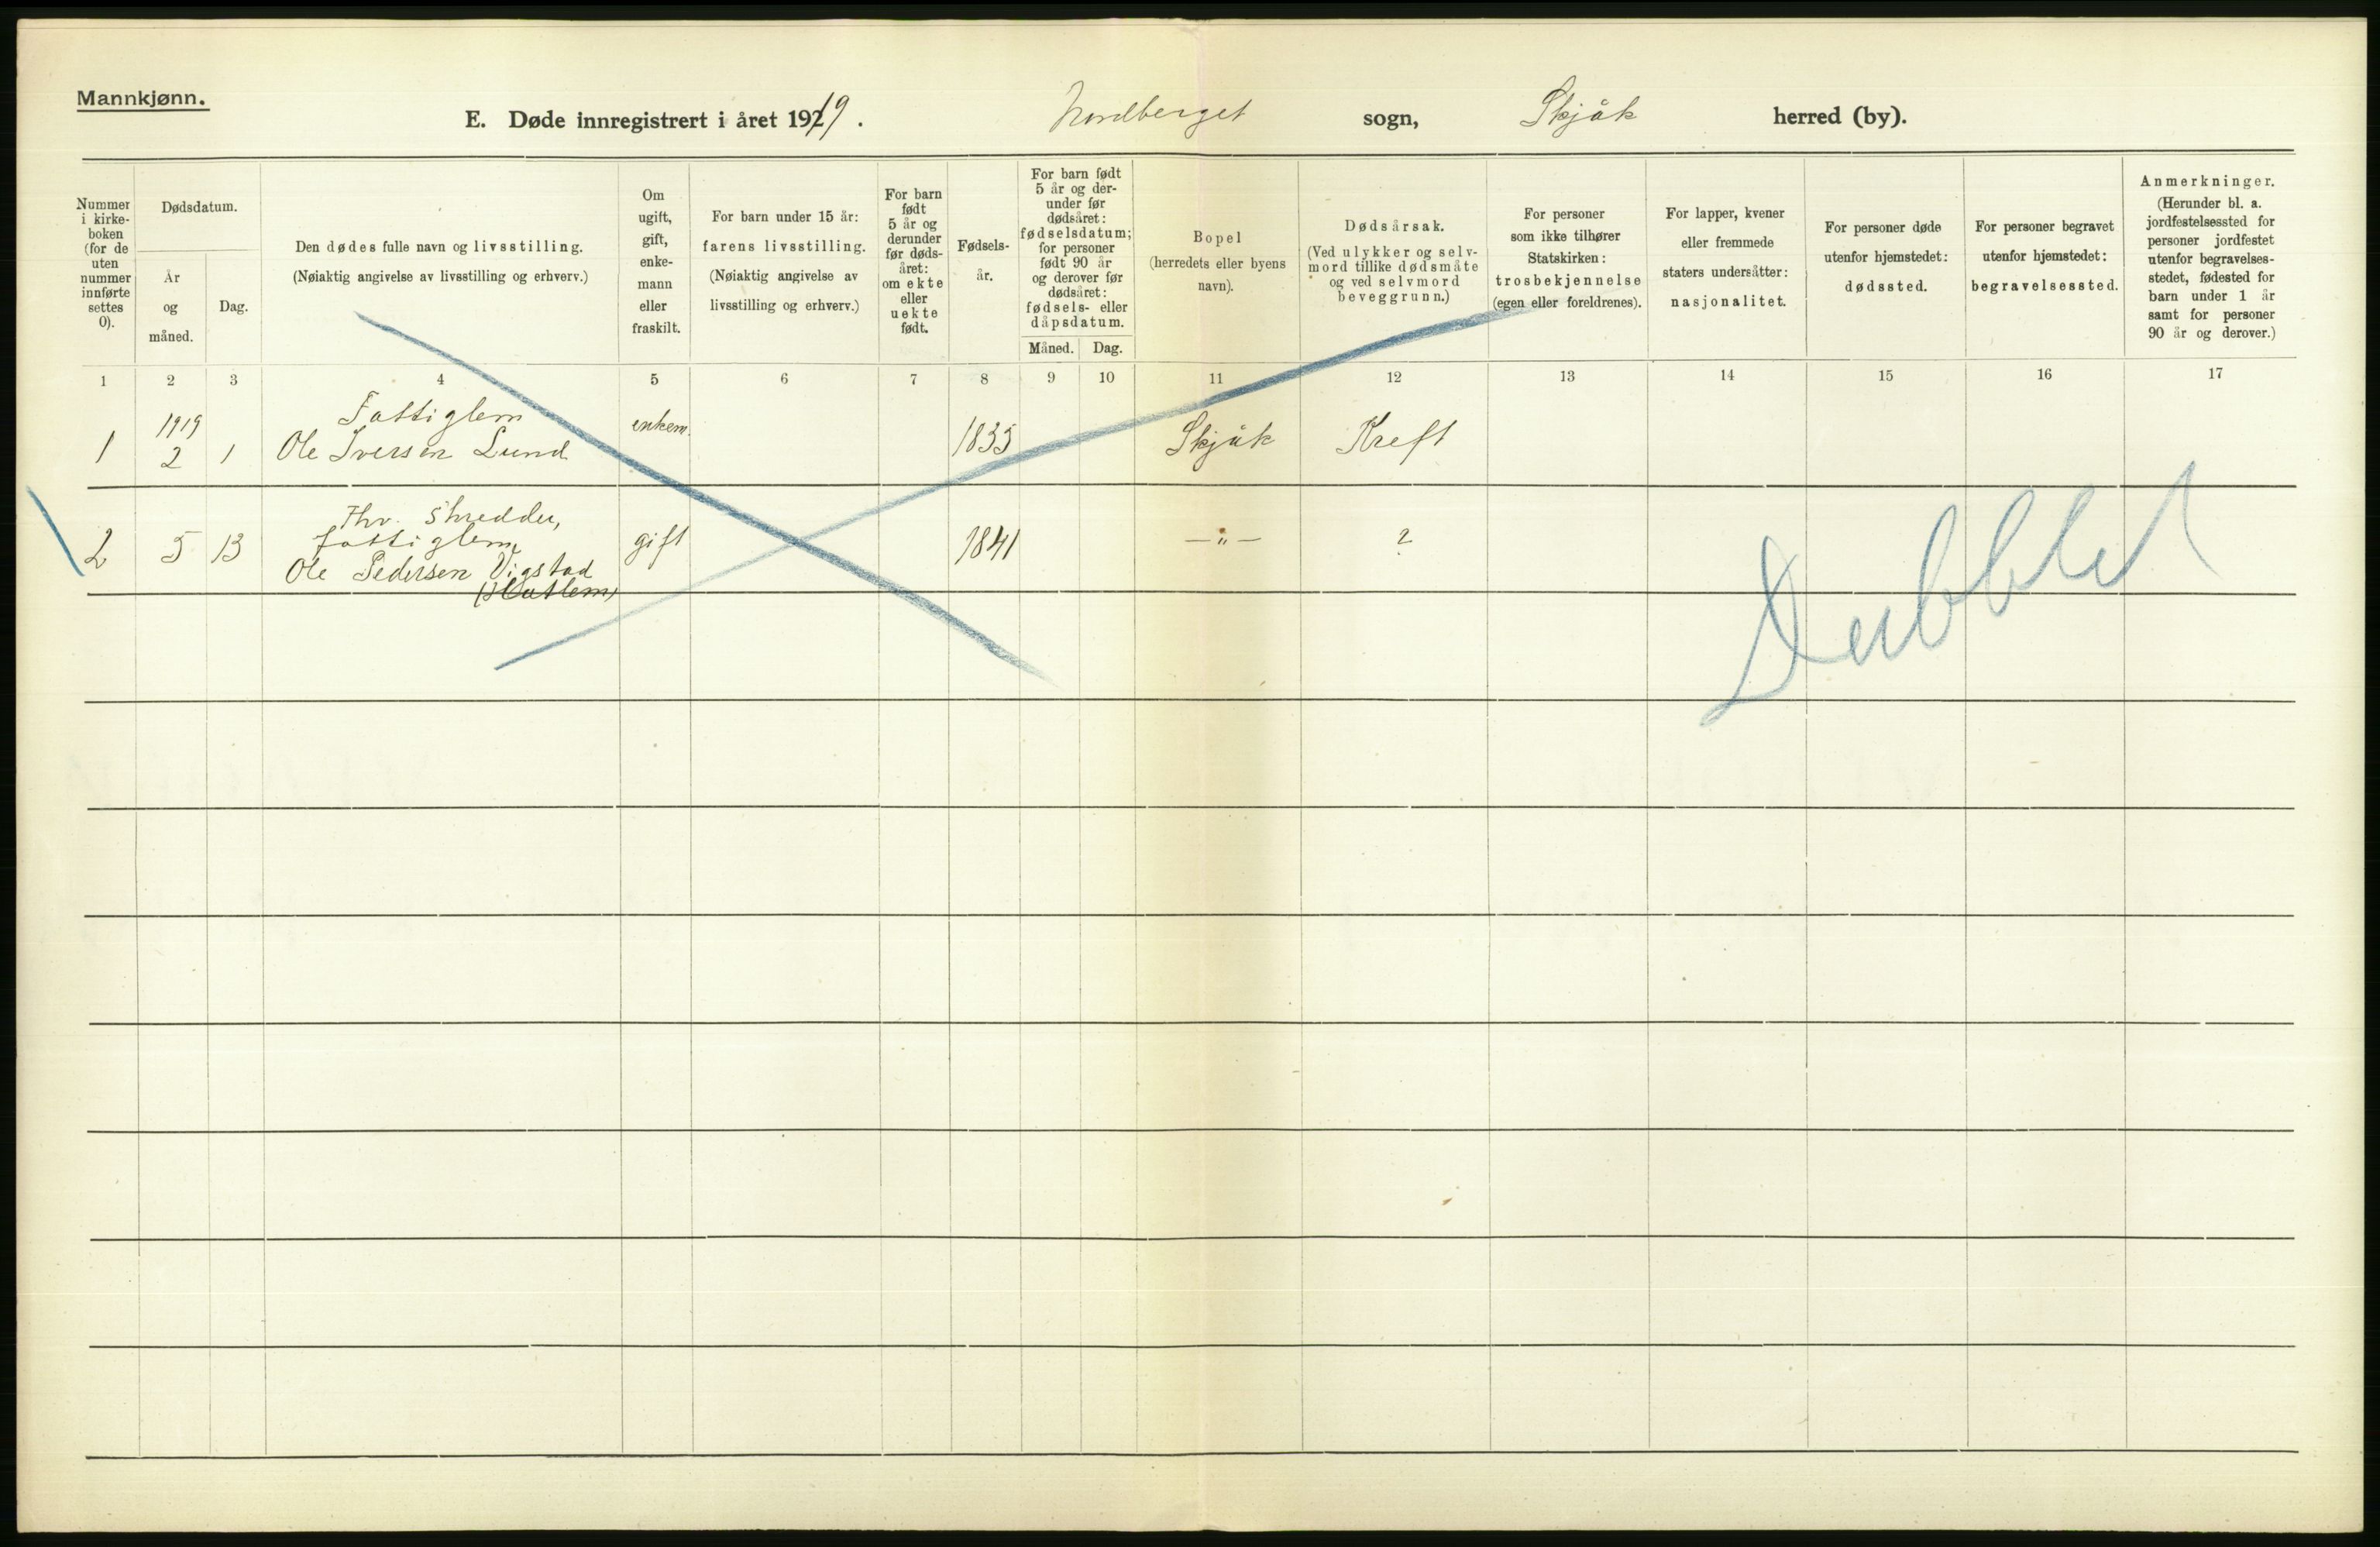 Mannkjønn.
E. Døde innregistrert i året 1919. Nordberget sogn, Skjåk herred (by).
Nummer
i kirke-
boken
(for de
uten
nummer
innførte
settes
0).
Dødsdatum.
År
og
måned.
Dag.
Den dødes fulle navn og livsstilling.
(Nøiaktig angivelse av livsstilling og erhverv.)
Om
ugift,
gift,
enke-
mann
eller
fraskilt.
For barn under 15 år:
farens livsstilling.
(Nøiaktig angivelse av
livsstilling og erhverv.)
For barn
født
5 år og
derunder
før døds-
året:
om ekte
eller
uekte
født.
Fødsels-
år.
For barn født
5 år og der-
under før
dødsåret:
fødselsdatum;
for personer
født 90 år
og derover før
dødsåret:
fødsels- eller
dåpsdatum.
Måned. Dag.
Bopel
(herredets eller byens
navn).
Dødsårsak.
(Ved ulykker og selv-
mord tillike dødsmåte
og ved selvmord
beveggrunn.)
For personer
som ikke tilhører
Statskirken:
trosbekjennelse
(egen eller foreldrenes).
For lapper, kvener
eller fremmede
staters undersåtter:
nasjonalitet.
For personer døde
utenfor hjemstedet:
dødssted.
For personer begravet
utenfor hjemstedet:
begravelsessted.
Anmerkninger.
(Herunder bl. a.
jordfestelsessted for
personer jordfestet
utenfor begravelses-
stedet, fødested for
barn under 1 år
samt for personer
90 år og derover.)
1 2 3 4 5 6 7 8 9 10 11 12 13 14 15 16 17
1919 Fattiglem
1 2 1 Ole Iversen Lund enkem. 1835 Skjåk Kreft
Fhv. Skredder,
fattiglem,
2 5 13 Ole Pedersen Vigstad gift 1841 — " — ?
Dubblet